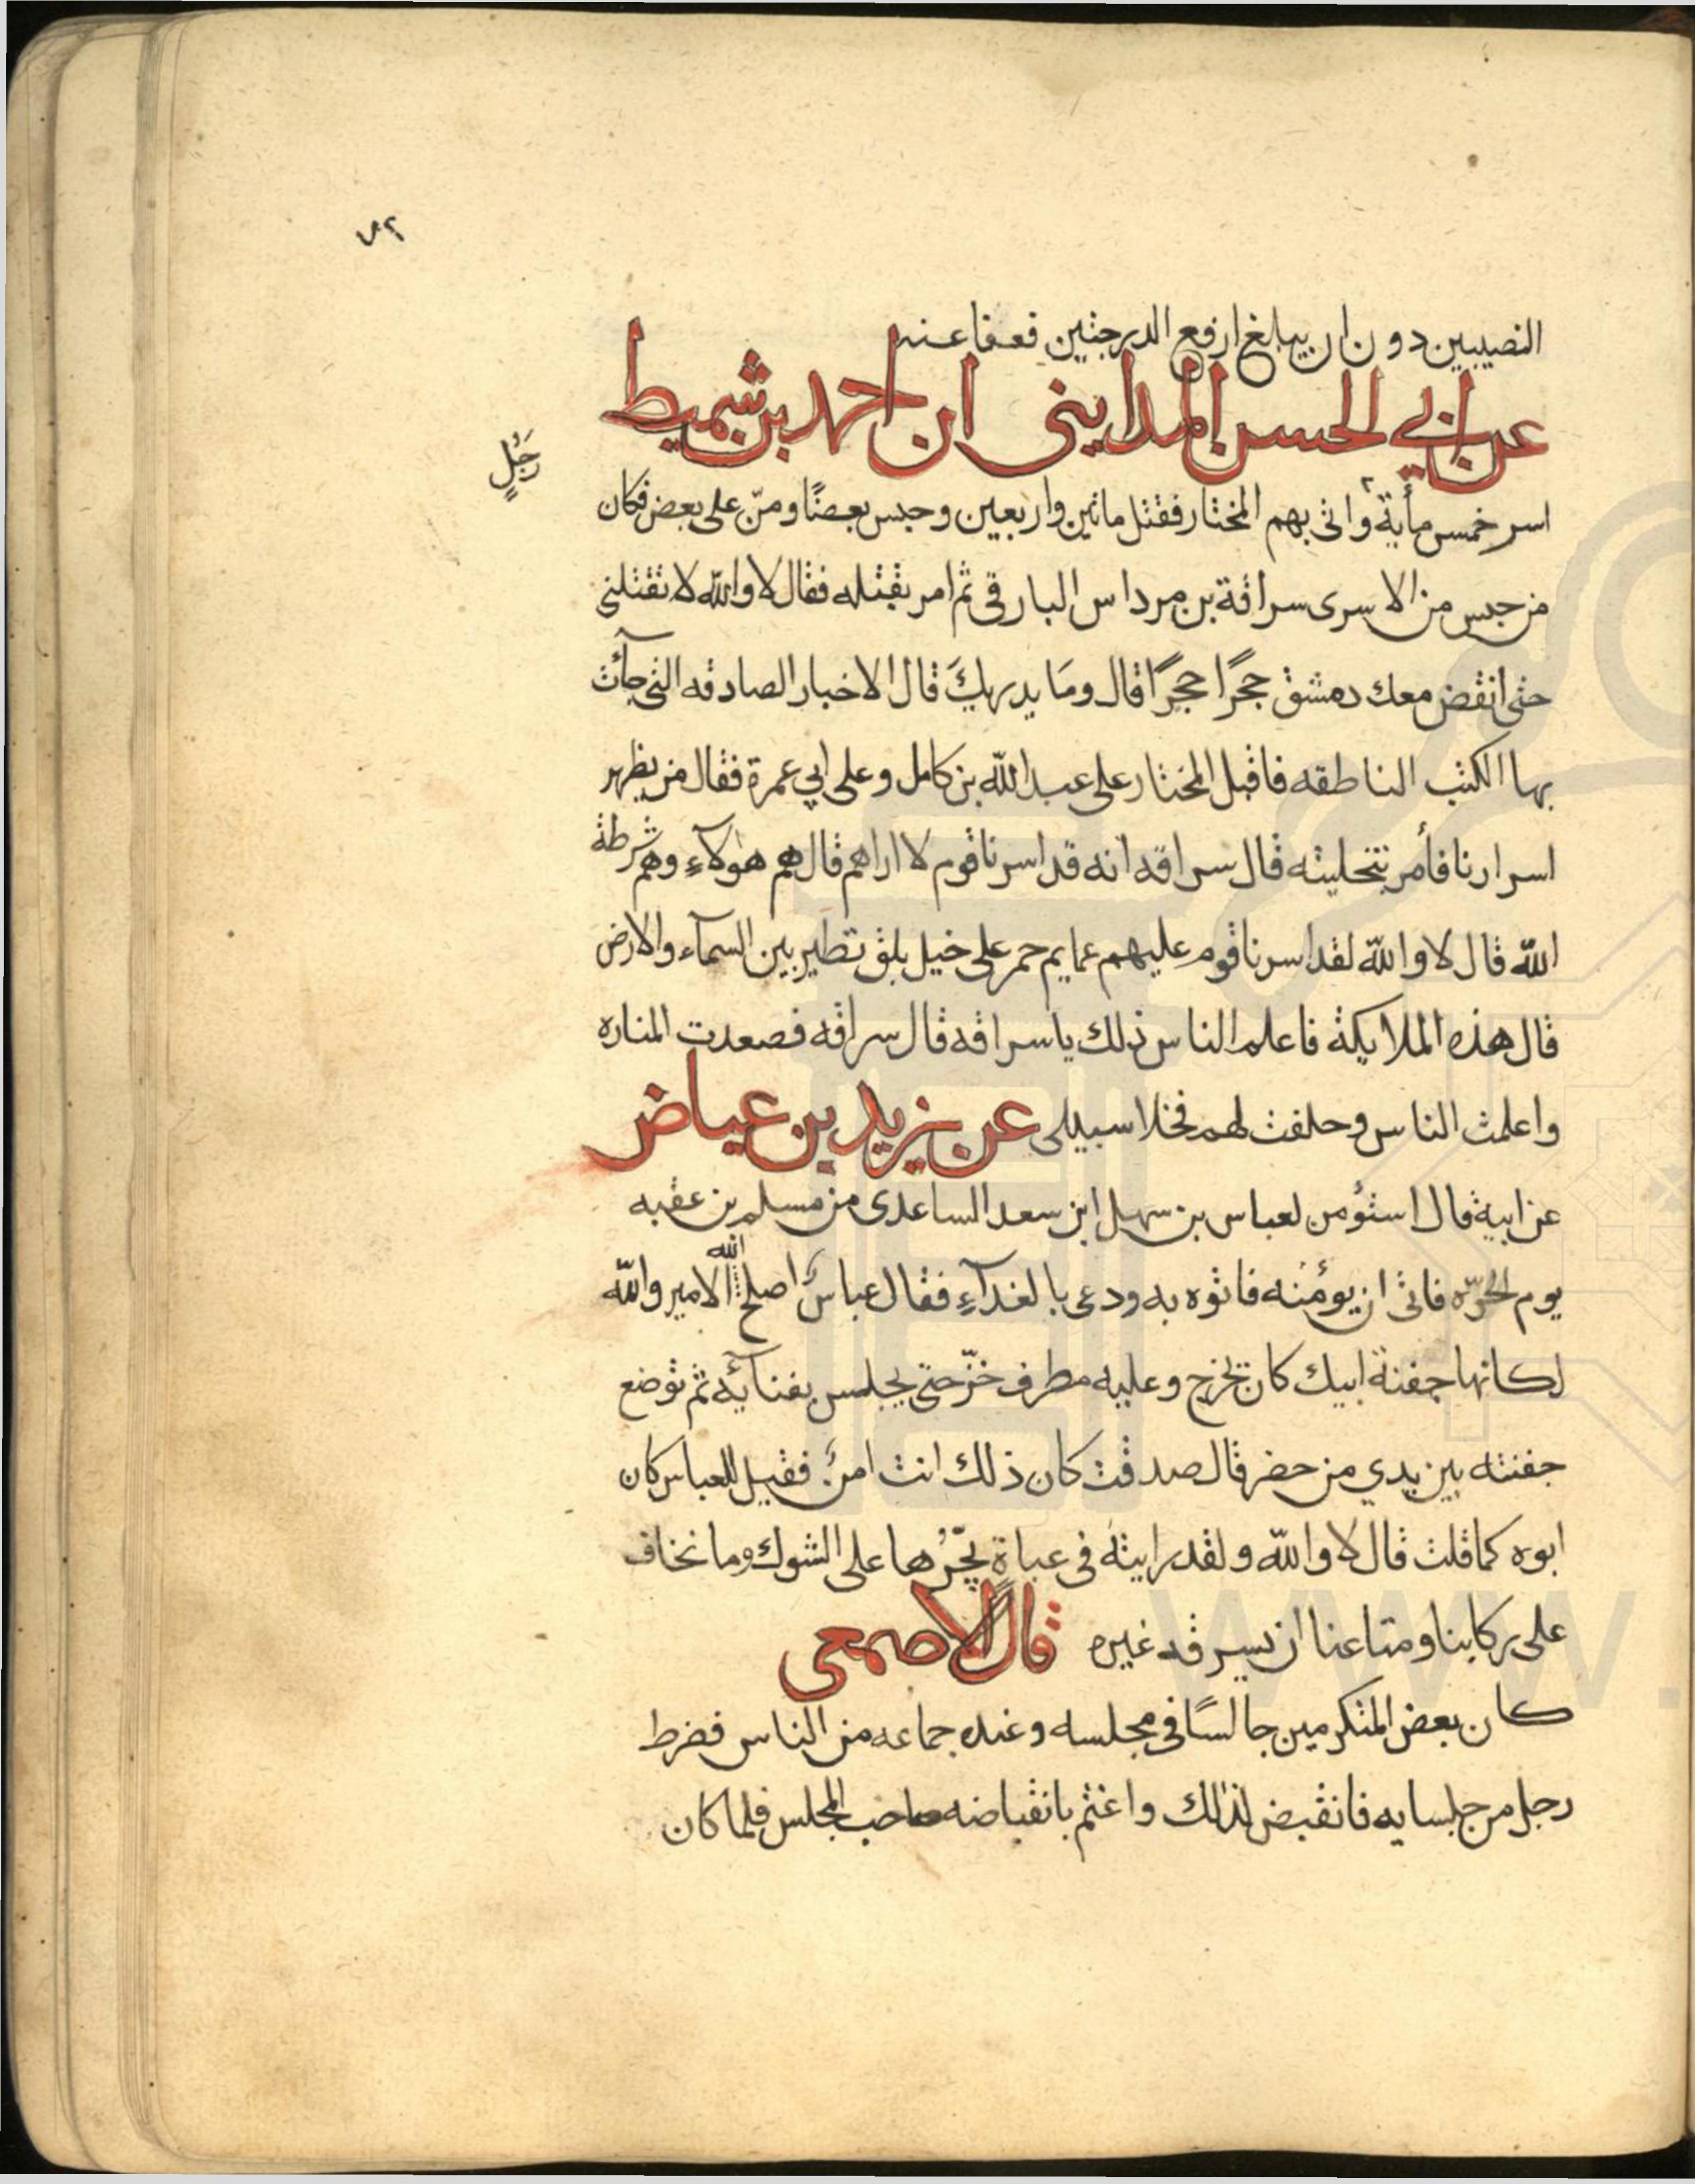 ٧٢
النصيبين دون ان يبلغ ارفع الدرجتين فعفا عنه
عن ابي الحسن المدايني ان احمد بن شميط
رَجُلٍ
اسر خمس مأية واتى بهم المختار فقتل ماتين واربعين وحبس بعضًا ومنّ على بعض فكان
من حبس من الاسرى سراقة بن مرداس البارقى ثم امر بقتله فقال لا والله لا تقتلنى
حتى انقض معك دمشق حجرًا حجرًا قال ومَا يدريكَ قال الاخبار الصادقه التى جآئت
بها الكتب الناطقه فاقبل المختار على عبد الله بن كامل وعلى ابي عمرة فقال من يظهر
اسرارنا فأمر بتخليته قال سراقه انه قد اسرنا قوم لا اراهم قال هم هولآءِ وهم شرطة
الله قال لا والله لقد اسرنا قوم عليهم عمايم حمر على خيل بلق تطير بين السمآء والارض
قال هذه الملايكة فاعلم الناس ذلك ياسراقه قال سراقه فصعدت المناره
واعلمت الناس وحلفت لهم فخلا سبيلى عن يزيد بن عياض
عن ابيه قال استؤمن لعباس بن سهل ابن سعد الساعدى من مسلم بن عقبه
يوم الحرّه فاتى ان يؤمنه فاتوه به ودعى بالغدآءِ فقال عباس اصلح الله الامير والله
لكانها جفنة ابيك كان يخرج وعليه مطرف خزّ حتى يجلس بفنآيه ثم توضع
جفنته بين يدي من حضر قال صدقت كان ذلك انت امن فقيل للعباس كان
ابوه كما قلت قال لا والله ولقد رايته فى عباة يجّرُها على الشوك وما نخاف
على ركابنا ومتاعنا ان يسرقه غيره قال الاصمعى
كان بعض المتكرمين جالسًا فى مجلسه وعنده جماعه من الناس فضرط
رجل من جلسايه فانقبض لذلك واغتم بانقباضه صاحب المجلس فلما كان